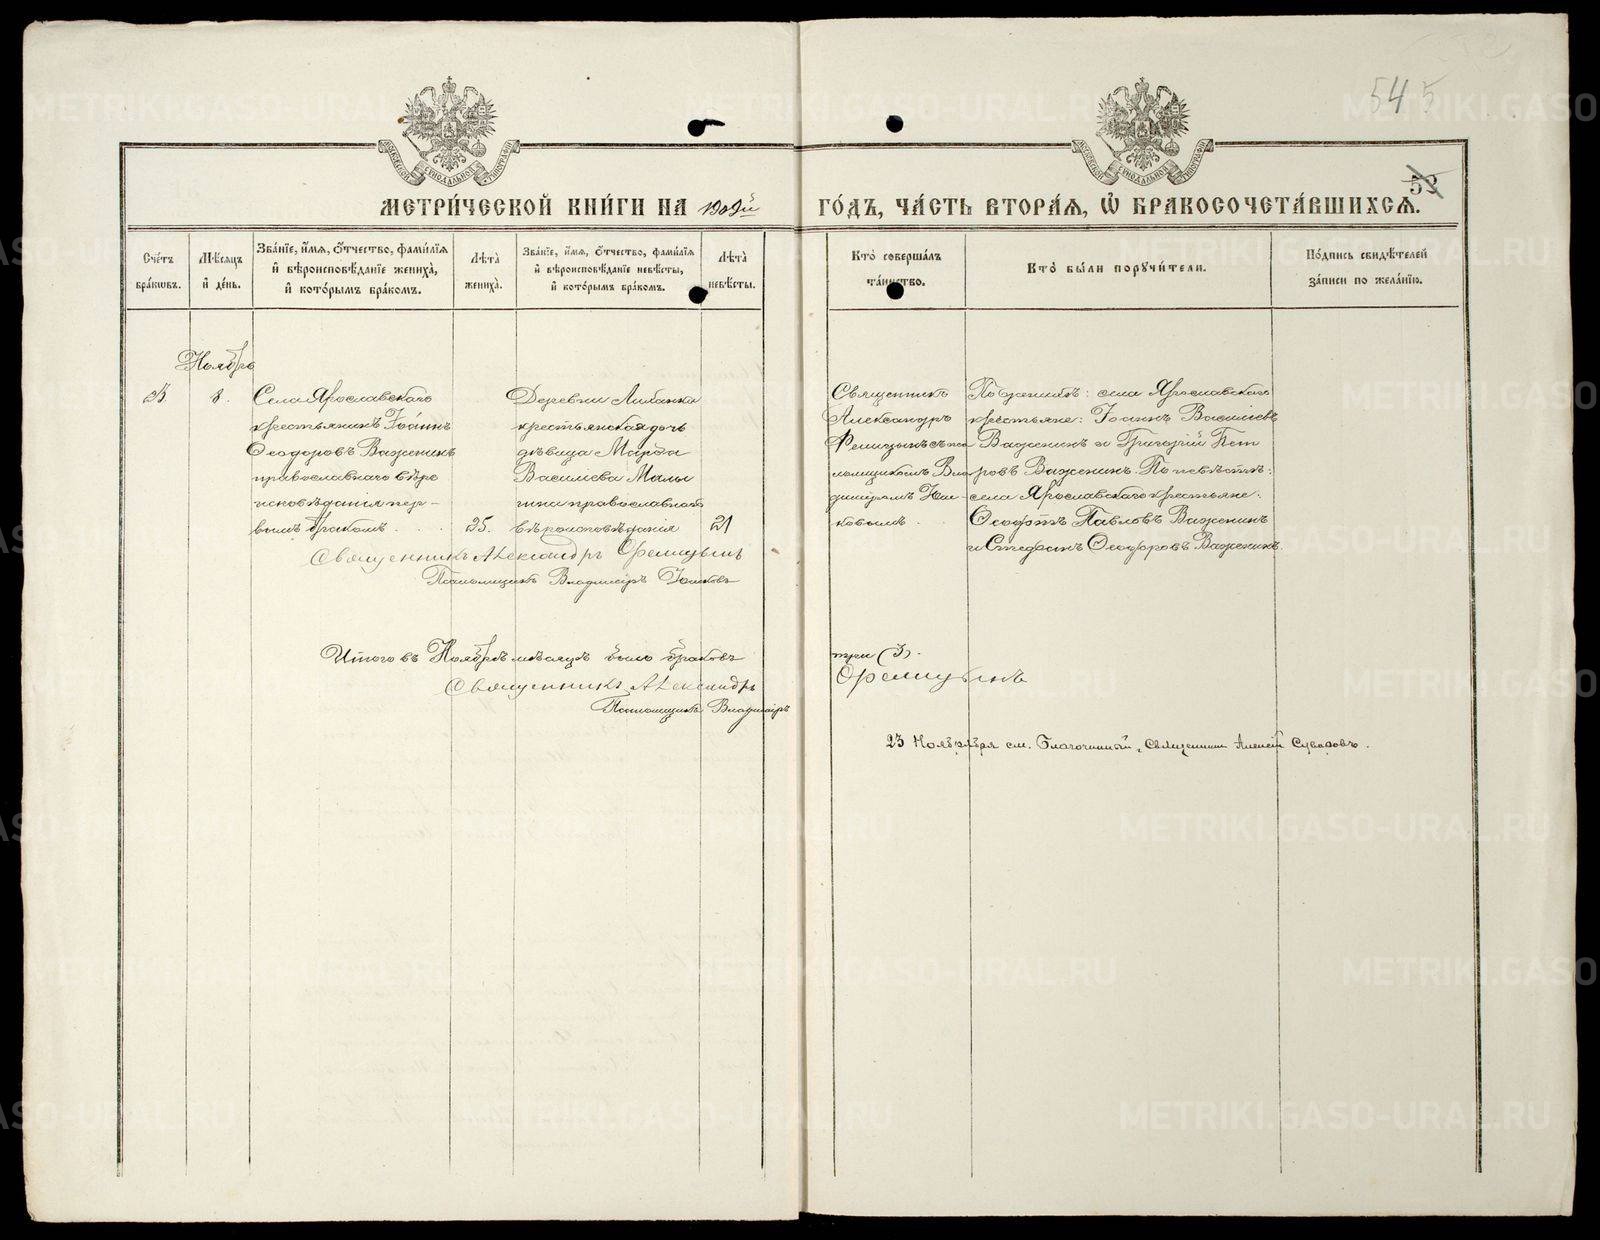 545
53
МЕТРИ́ЧЕСКОЙ КНИ́ГИ НА 1909й ГО́ДЪ, ЧА́СТЬ ВТОРА́Я, Ѡ БРАКОСОЧЕТА́ВШИХСЯ.
Сче́тъ бра́кѡвъ.
Мѣ́сяцъ и҆ де́нь.
Зва́нїе, и҆́мя, ѻ҆́тчество, фами́лїя и҆ вѣроисповѣ́данїе жениха̀, и҆ кото́рымъ бра́комъ.
Лѣ́та жениха̀.
Зва́нїе, и҆́мя, ѻ҆́тчество, фами́лїя и҆ вѣроисповѣ́данїе невѣ́сты, и҆ кото́рымъ бра́комъ.
Лѣ́та невѣ́сты.
Кто̀ соверша́лъ та́инство.
Кто̀ бы́ли порꙋчи́тели.
По́дпись свидѣ́телей за́писи по жела́нїю.
Ноябрь
8.
Села Ярославскаго
крестьянинъ Іоаннъ
Ѳеодоровъ Важенинъ
православнаго вѣро
исповѣданія пер-
вымъ бракомъ
25.
Деревни
крестьянская дочь
дѣвица Марѳа
Василіева Малы
гина православнаго
вѣроисповѣданія
21
Священникъ
Александръ
Фелицынъ съ пса
ломщикомъ Вла
диміромъ
По женихѣ: села Ярославскаго
крестьяне: Іоаннъ Василіевъ
Важенинъ и Григорій Пет
ровъ Важенинъ. По невѣстѣ:
села Ярославскаго крестьяне:
Ѳеофанъ Павловъ Важенинъ
и Стефанъ Ѳеодоровъ Важенинъ.
Священникъ Александръ Фелицынъ
Псаломщикъ Владиміръ
Итого въ Ноябрѣ мѣсяцѣ было браковъ три (3).
Священникъ Александръ Фелицынъ
Псаломщикъ Владиміръ
23 Ноября см. Благочинный, Священникъ Алексій Суворовъ.
METRIKI.GASO-URAL.RU